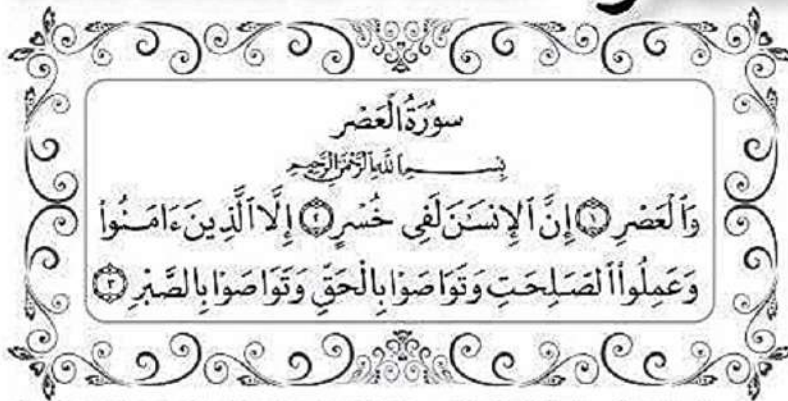 سُورَةُ الْعَصْرِ
بِسْمِ اللَّهِ الرَّحْمَٰنِ الرَّحِيمِ
وَٱلْعَصْرِ ۝١ إِنَّ ٱلْإِنسَٰنَ لَفِى خُسْرٍ ۝٢ إِلَّا ٱلَّذِينَ ءَامَنُوا۟
وَعَمِلُوا۟ ٱلصَّٰلِحَٰتِ وَتَوَاصَوْا۟ بِٱلْحَقِّ وَتَوَاصَوْا۟ بِٱلصَّبْرِ ۝٣